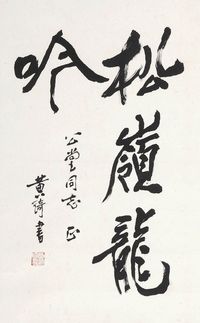 松嶺龍
吟
公常同志正
黄绮書